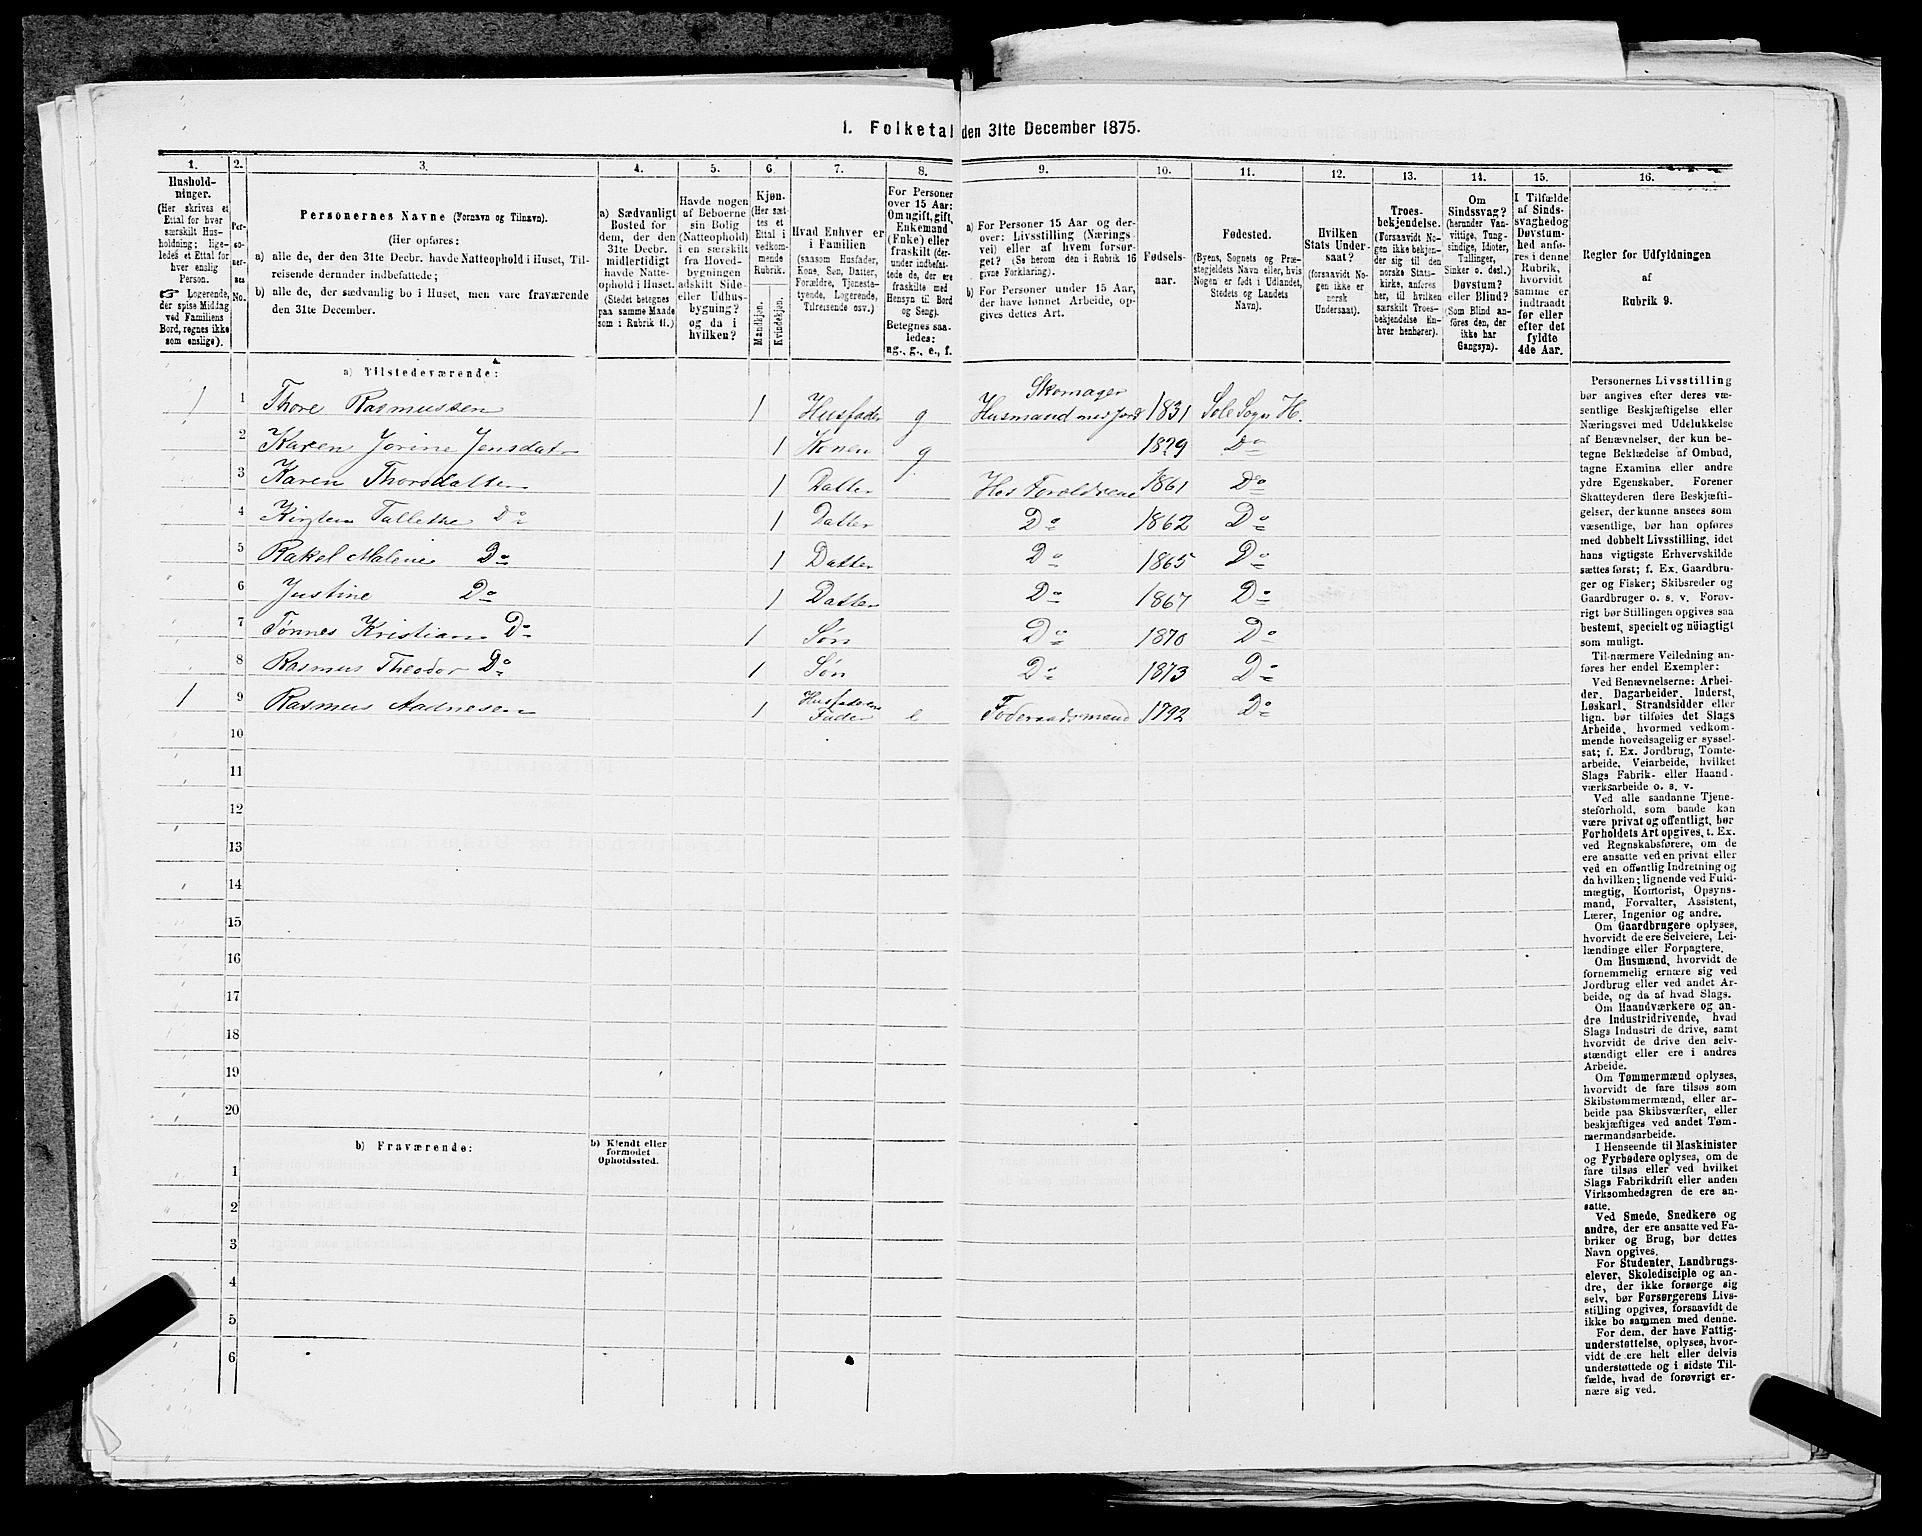 1. Folketal den 31te December 1875.
1.
Hushold-
ninger.
(Her skrives et
Ettal for hver
særskilt Hus-
holdning; lige-
ledes et Ettal for
hver enslig
Person.
☞ Logerende,
der spise Middag
ved Familiens
Bord, regnes ikke
som enslige).
2.
Per-
so-
ner-
nes
No.
3.
Personernes Navne (Fornavn og Tilnavn).
(Her opføres:
a) alle de, der den 31te Decbr. havde Natteophold i Huset, Til-
reisende derunder indbefattede;
b) alle de, der sædvanlig bo i Huset, men vare fraværende
den 31te December.
4.
a) Sædvanligt
Bosted for
dem, der den
31te Decbr.
midlertidigt
havde Natte-
ophold i Huset.
(Stedet betegnes
paa samme Maade
som i Rubrik 11.)
5.
Havde nogen
af Beboerne
sin Bolig
(Natteophold)
i en særskilt
fra Hoved-
bygningen
adskilt Side-
eller Udhus-
bygning?
og da i
hvilken?
6.
Kjøn.
(Her sæt-
tes et
Ettal i
vedkom-
mende
Rubrik.
Mandkjøn.
Kvindekjøn.
7.
Hvad Enhver er
i Familien
(saasom Husfader,
Kone, Søn, Datter,
Forældre, Tjeneste-
tyende, Logerende,
Tilreisende osv.)
8.
For Personer
over 15 Aar:
Om ugift, gift,
Enkemand
(Enke) eller
fraskilt (der-
under indbefat-
tede de, der ere
fraskilte med
Hensyn til Bord
og Seng).
Betegnes saa-
ledes:
ug., g., e., f.
9.
a) For Personer 15 Aar og der-
over: Livsstilling (Nærings
vei) eller af hvem forsør-
get? (Se herom den i Rubrik 16
givne Forklaring).
b) For Personer under 15 Aar,
der have lønnet Arbeide, op-
gives dettes Art.
10.
Fødsels-
aar.
11.
Fødested.
(Byens, Sognets og Præ-
stegjeldets Navn eller, hvis
Nogen er født i Udlandet,
Stedets og Landets
Navn).
12.
Hvilken
Stats Under-
saat?
(forsaavidt No-
gen ikke er
norsk
Undersaat).
13.
Troes-
bekjendelse.
(Forsaavidt No-
gen ikke bekjen-
der sig til den
norske Stats-
kirke, anføres
her, til hvilken
særskilt Troes-
bekjendelse En-
hver henhører).
14.
Om
Sindssvag?
(herunder Van-
vittige, Tung-
sindige, Idioter,
Tullinger,
Sinker o. desl.)
Døvstum?
eller Blind?
(Som Blind an-
føres den, der
ikke har
Gangsyn).
15.
I Tilfælde
af Sinds-
svaghed og
Døvstum-
hed anfø-
res i denne
Rubrik,
hvorvidt
samme er
indtraadt
før eller
efter det
fyldte
4de Aar.
16.
Regler for Udfyldningen
af
Rubrik 9.
a) Tilstedeværende:
Skomager
1 1 Thore Rasmussen 1 Husfader g Husmand med Jord 1831 Sole Sogn H.
2 Karen Jorine Jensdatr 1 Konen g 1829 Do
3 Karen Thorsdatter 1 Datter Hos Forældrene 1861 Do
4 Kirsten Tallette Do 1 Datter Do 1862 Do
5 Rakel Malene Do 1 Datter Do 1865 Do
6 Justine Do 1 Datter Do 1867 Do
7 Tønnes Kristian Do 1 Søn Do 1870 Do
8 Rasmus Theodor Do 1 Søn Do 1873 Do
1 9 Rasmus Aadnesen 1 Husfaderens Fader e Føderaadsmand 1792 Do
10
11
12
13
14
15
16
17
18
19
20
b) Fraværende:
b) Kjendt eller
formodet
Opholdssted.
1
2
3
4
5
6
Personernes Livsstilling
bør angives efter deres væ-
sentlige Beskjæftigelse eller
Næringsvei med Udelukkelse
af Benævnelser, der kun be-
tegne Beklædelse af Ombud,
tagne Examina eller andre
ydre Egenskaber. Forener
Skatteyderen flere Beskjæfti-
gelser, der kunne ansees som
væsentlige, bør han opføres
med dobbelt Livsstilling, idet
hans vigtigste Erhvervskilde
sættes først; f. Ex. Gaardbru-
ger og Fisker; Skibsreder og
Gaardbruger o. s. v. Forøv-
rigt bør Stillingen opgives saa
bestemt, specielt og nöiagtigt
som muligt.
Til nærmere Veiledning an-
føres her endel Exempler:
Ved Benævnelserne: Arbei-
der, Dagarbeider, Inderst,
Løskarl, Strandsidder eller
lign. bør tilføies det Slags
Arbeide, hvormed vedkom-
mende hovedsagelig er syssel-
sat; f. Ex. Jordbrug, Tomte-
arbeide, Veiarbeide, hvilket
Slags Fabrik- eller Haand-
værksarbeide o. s. v.
Ved alle saadanne Tjene-
steforhold, som baade kan
være privat og offentligt, bør
Forholdets Art opgives, t. Ex.
ved Regnskabsførere, om de
ere ansatte ved en privat eller
ved en offentlig Indretning og
da hvilken; lignende ved Fuld-
mægtig, Kontorist, Opsyns-
mand, Forvalter, Assistent,
Lærer, Ingeniør og andre.
Om Gaardbrugere oplyses,
hvorvidt de ere Selveiere, Lei-
lændinge eller Forpagtere.
Om Husmænd, hvorvidt de
fornemmelig ernære sig ved
Jordbrug eller ved andet Ar-
beide, og da af hvad Slags.
Om Haandværkere og an-
dre Industridrivende, hvad
Slags Industri de drive, samt
hvorvidt de drive den selv-
stændigt eller ere i andres
Arbeide.
Om Tømmermænd oplyses,
hvorvidt de fare tilsøs som
Skibstømmermænd, eller ar-
beide paa Skibsværfter, eller
beskjæftiges ved andet Tøm-
mermandsarbeide.
I Henseende til Maskinister
og Fyrbødere oplyses, om de
fare tilsøs eller ved hvilket
Slags Fabrikdrift eller anden
Virksomhedsgren de ere an-
satte.
Ved Smede, Snedkere og
andre, der ere ansatte ved Fa-
briker og Brug, bør dettes
Navn opgives.
For Studenter, Landbrugs-
elever, Skoledisciple og an-
dre, der ikke forsørge sig
selv, bør Forsørgerens Livs-
stilling opgives, forsaavidt de
ikke bo sammen med denne.
For dem, der have Fattig-
understøttelse, oplyses, hvor-
vidt de ere helt eller delvis
understøttede og i sidste Til-
fælde, hvad de forøvrigt er-
nære sig ved.